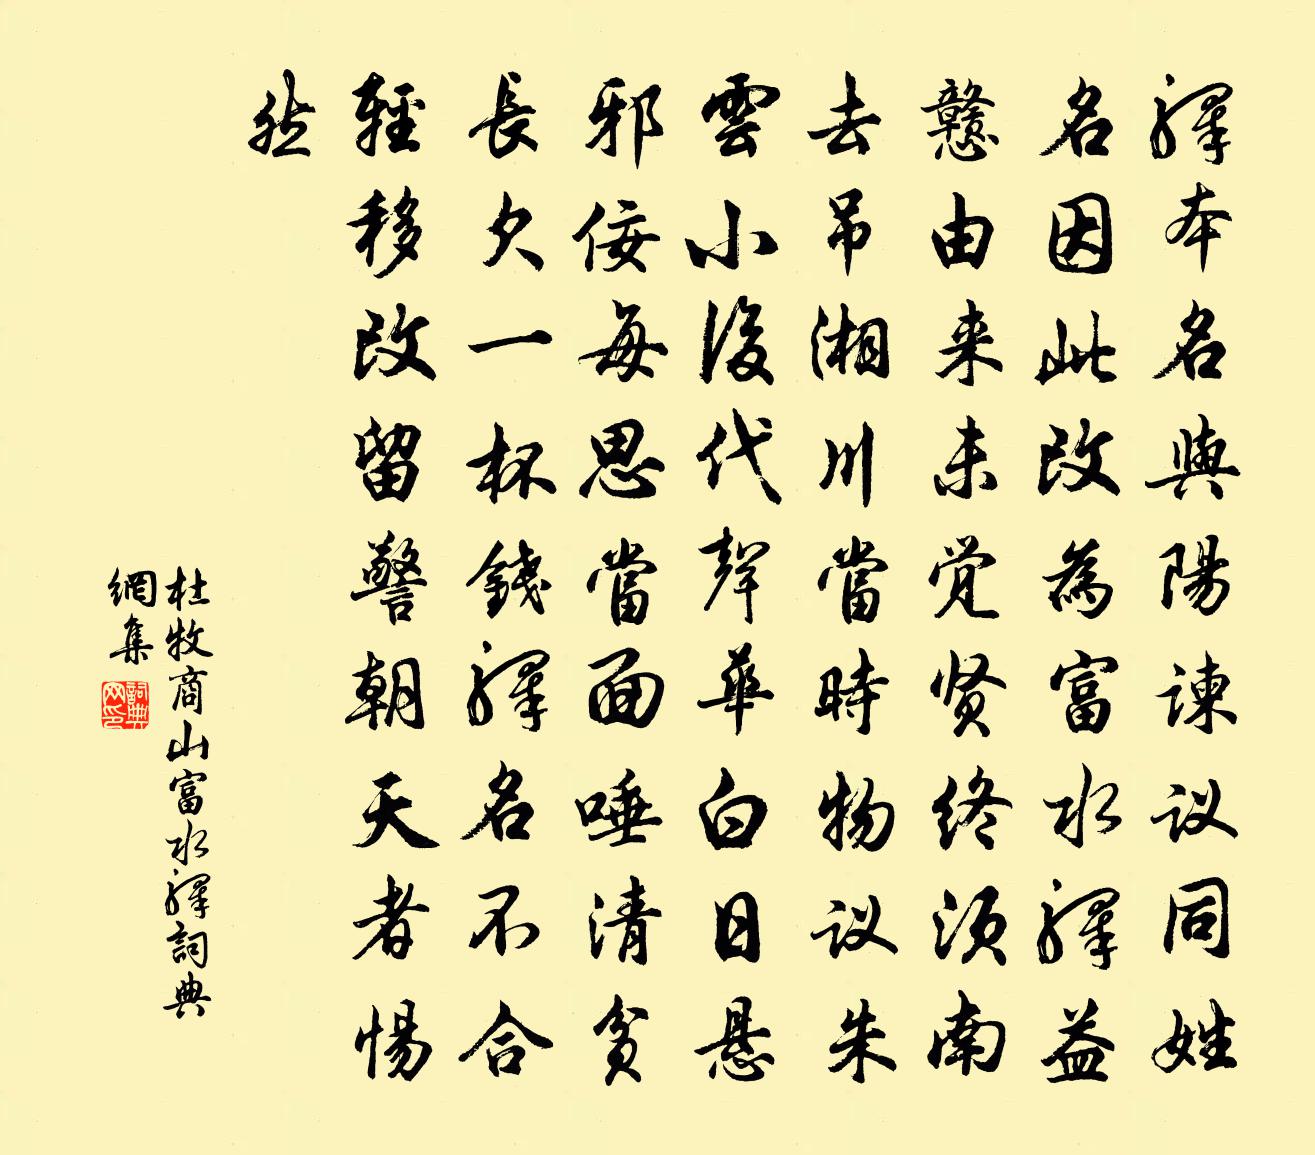 驛本名與陽諫议同姓
名因此改為富水驛益
戇由来未觉贤终须南
去吊湘川當時物议朱
雲小後代聲華白日悬
邪佞每思當面唾清貧
長欠一杯錢驛名不合
輕移改留警朝天者惕
然
杜牧商山富水驛詞典
網集
詞典
网印